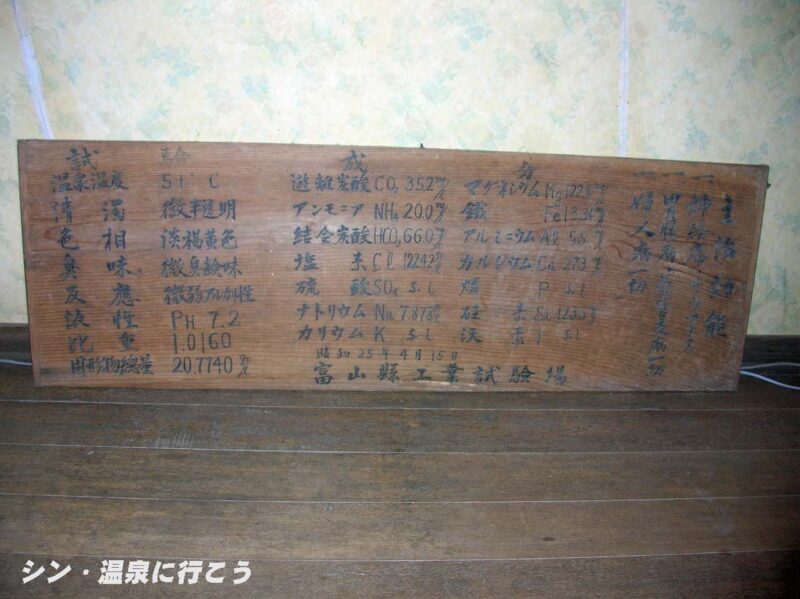 試験 成分
温泉温度 51 C
清濁 微半透明
色相 淡褐黄色
臭味 微臭鹹味
反應 微弱アルカリ性
液性 PH 7.2
比重 1.0160
固形物總量 20.7740
遊離炭酸 CO2 35.2
アンモニア NH4 20.0
結合炭酸 HCO3 66.0
塩素 Cl 12242
硫酸 SO4 S.t
ナトリウム Na 7.878
カリウム K S.t
マグネシウム Mg 122.8
鐵 Fe 13.34
アルミニウム Al 5.5
カルシウム Ca 273
燐 P S.t
硅素
沃素 I S.t
昭和25年4月15日
富山縣工業試験場
主治効能
一神経痛
一胃腸病
一婦人病一切
シン・温泉に行こう